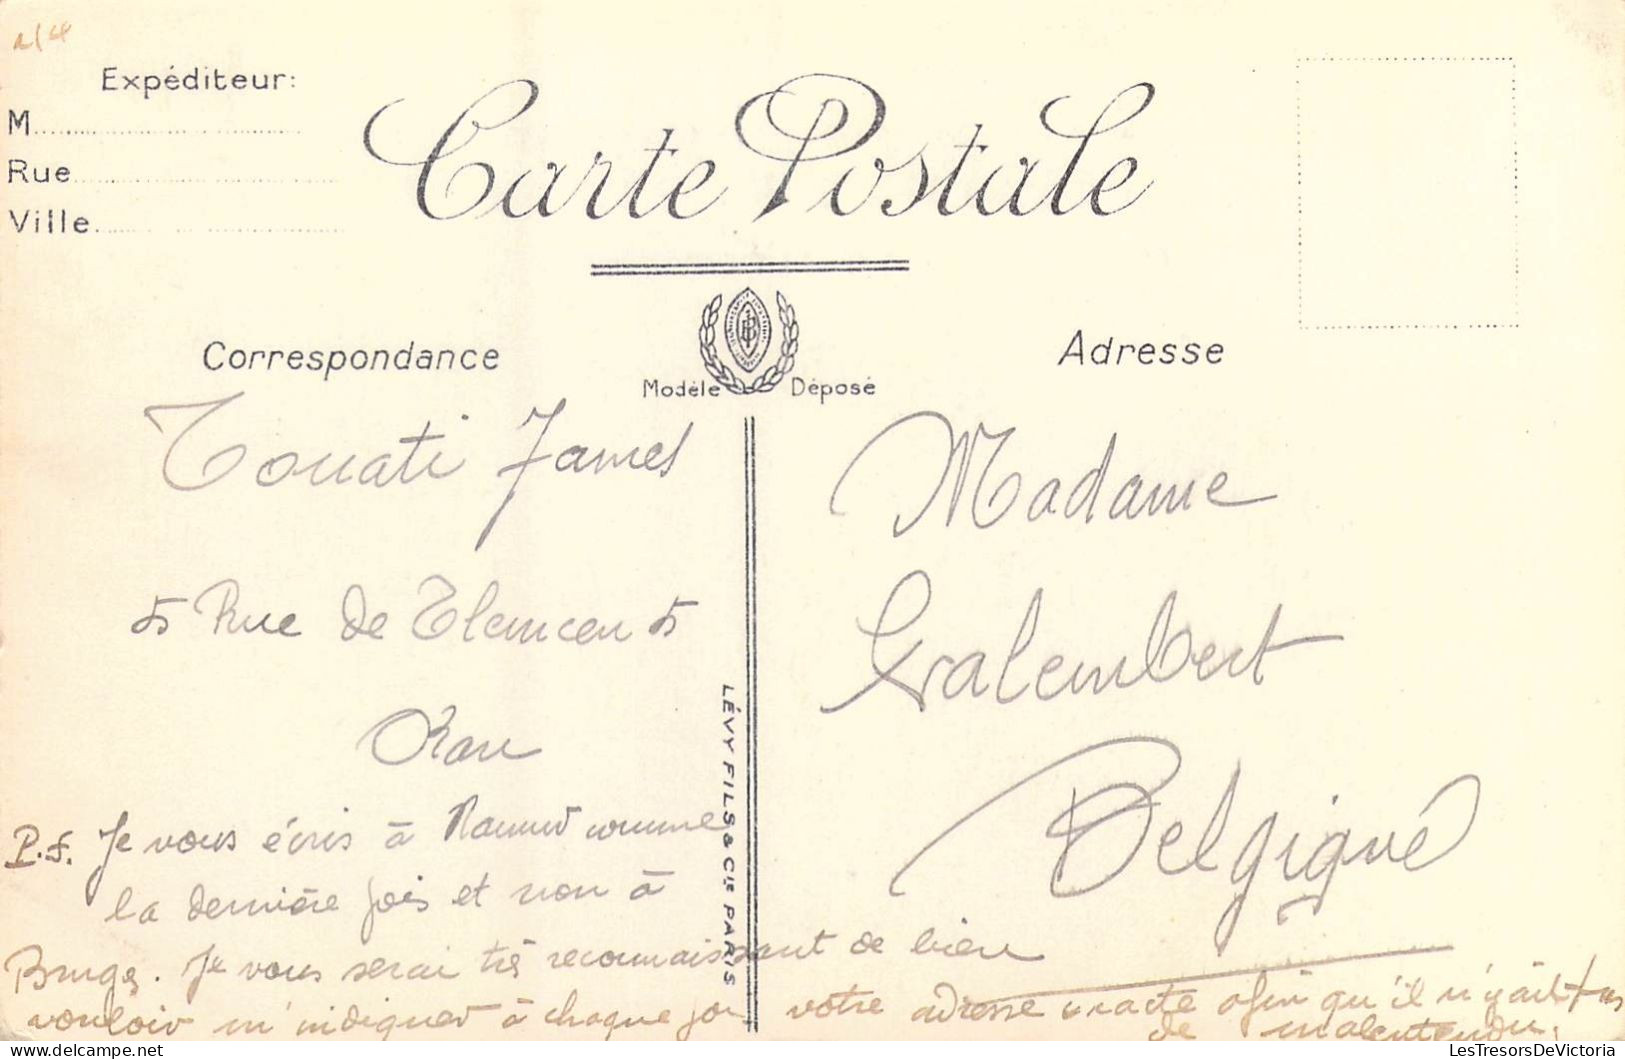 Expéditeur:
M
Rue
Ville
Carte Postale
Correspondance
Modèle Déposé
Adresse
Touati James
5 Rue de Tlemcen 5
Oran
P.S. Je vous écris à comme
la dernière fois et non à
Bruges. Je vous serai très reconnaissant de bien
vouloir m'indiquer à chaque fois votre adresse exacte afin qu'il n'y ait pas
de malentendu.
Madame
Galembert
Belgique
LÉVY FILS & CIE PARIS
LesTresorsDeVictoria